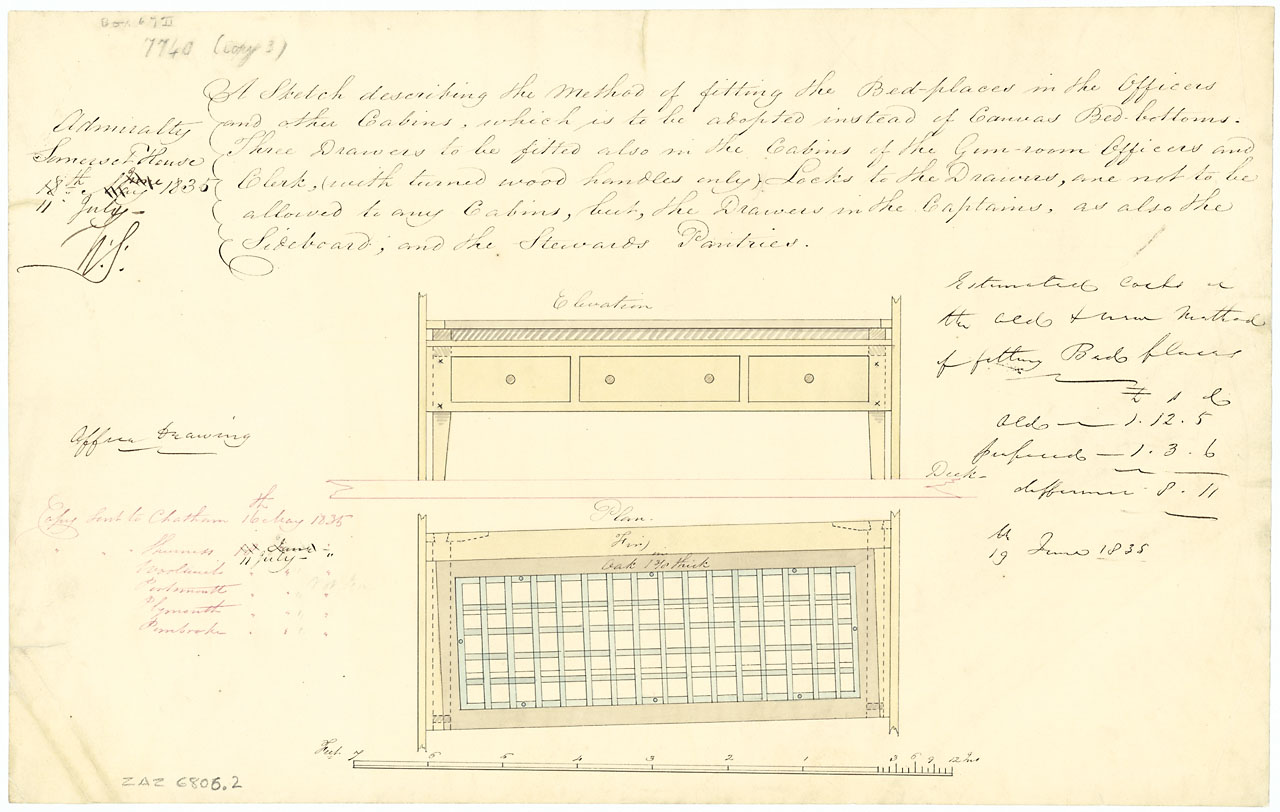 7740 (copy 3)
A Sketch describing the Method of fitting the Bed-places in the Officers
and other Cabins, which is to be adopted instead of Canvas Bed-bottoms.
Three Drawers to be fitted also in the Cabins of the Gun-room Officers and
Clerk, (with turned wood handles only) Locks to the Drawers, are not to be
allowed to any Cabins, but, the Drawers in the Captains, as also the
Sideboard; and the Stewards Pantries.
Admiralty
Somerset House
18th 1835
11 July
Elevation
Estimated costs
the old & new Method
of fitting Bed places
£ s d
old 1. 12. 5
proposed 1. 3. 6
difference 8. 11
th
19 June 1835
Office Drawing
Deck
Copy sent to Chatham 16th May 1835
" " " Sheerness 11 July "
Woolwich " " "
Portsmouth " " "
Plymouth " " "
Pembroke " " "
Plan.
Fir
Oak thick
Feet 7 6 5 4 3 2 1 3 6 9 12 Ins
ZAZ 6806.2